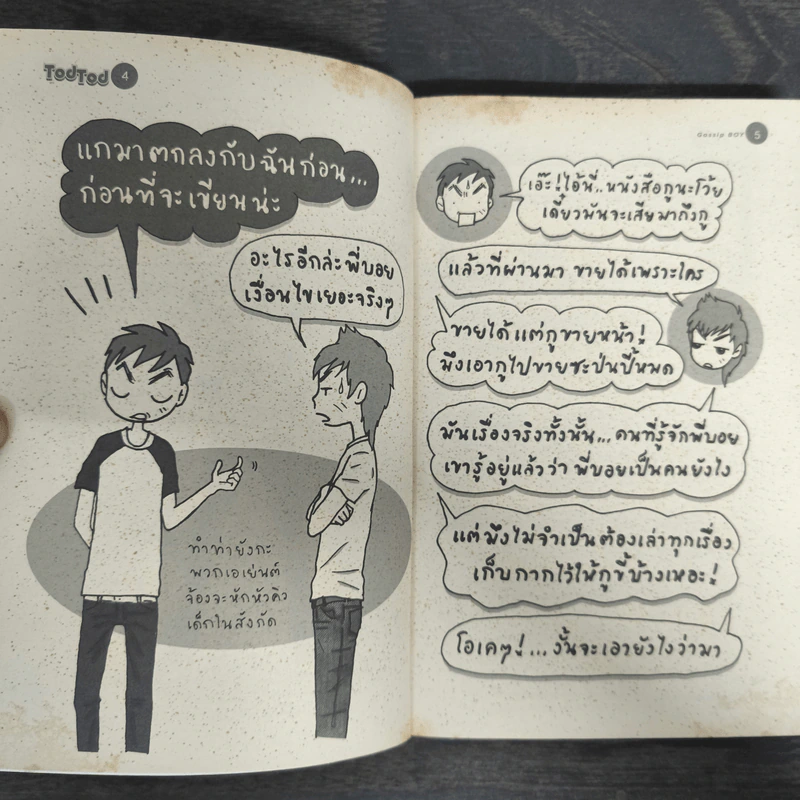 TodTod 4
แกมาตกลงกับฉันก่อน...
ก่อนที่จะเขียนน่ะ
อะไรอีกล่ะพี่บอย
เงื่อนไขเยอะจริงๆ
ทำท่ายังกะ
พวกเอเย่นต์
จ้องจะหักหัวคิว
เด็กในสังกัด
Gossip BOY 5
เอ๊ะ!ไอ้นี่..หนังสือกูนะโว้ย
เดี๋ยวมันจะเสียมาถึงกู
แล้วที่ผ่านมา ขายได้เพราะใคร
ขายได้แต่กูขายหน้า!
มึงเอากูไปขายซะป่นปี้หมด
มันเรื่องจริงทั้งนั้น...คนที่รู้จักพี่บอย
เขารู้อยู่แล้วว่า พี่บอยเป็นคนยังไง
แต่มึงไม่จำเป็นต้องเล่าทุกเรื่อง
เก็บกากไว้ให้กูขี้บ้างเหอะ!
โอเคๆ!...งั้นจะเอายังไงว่ามา